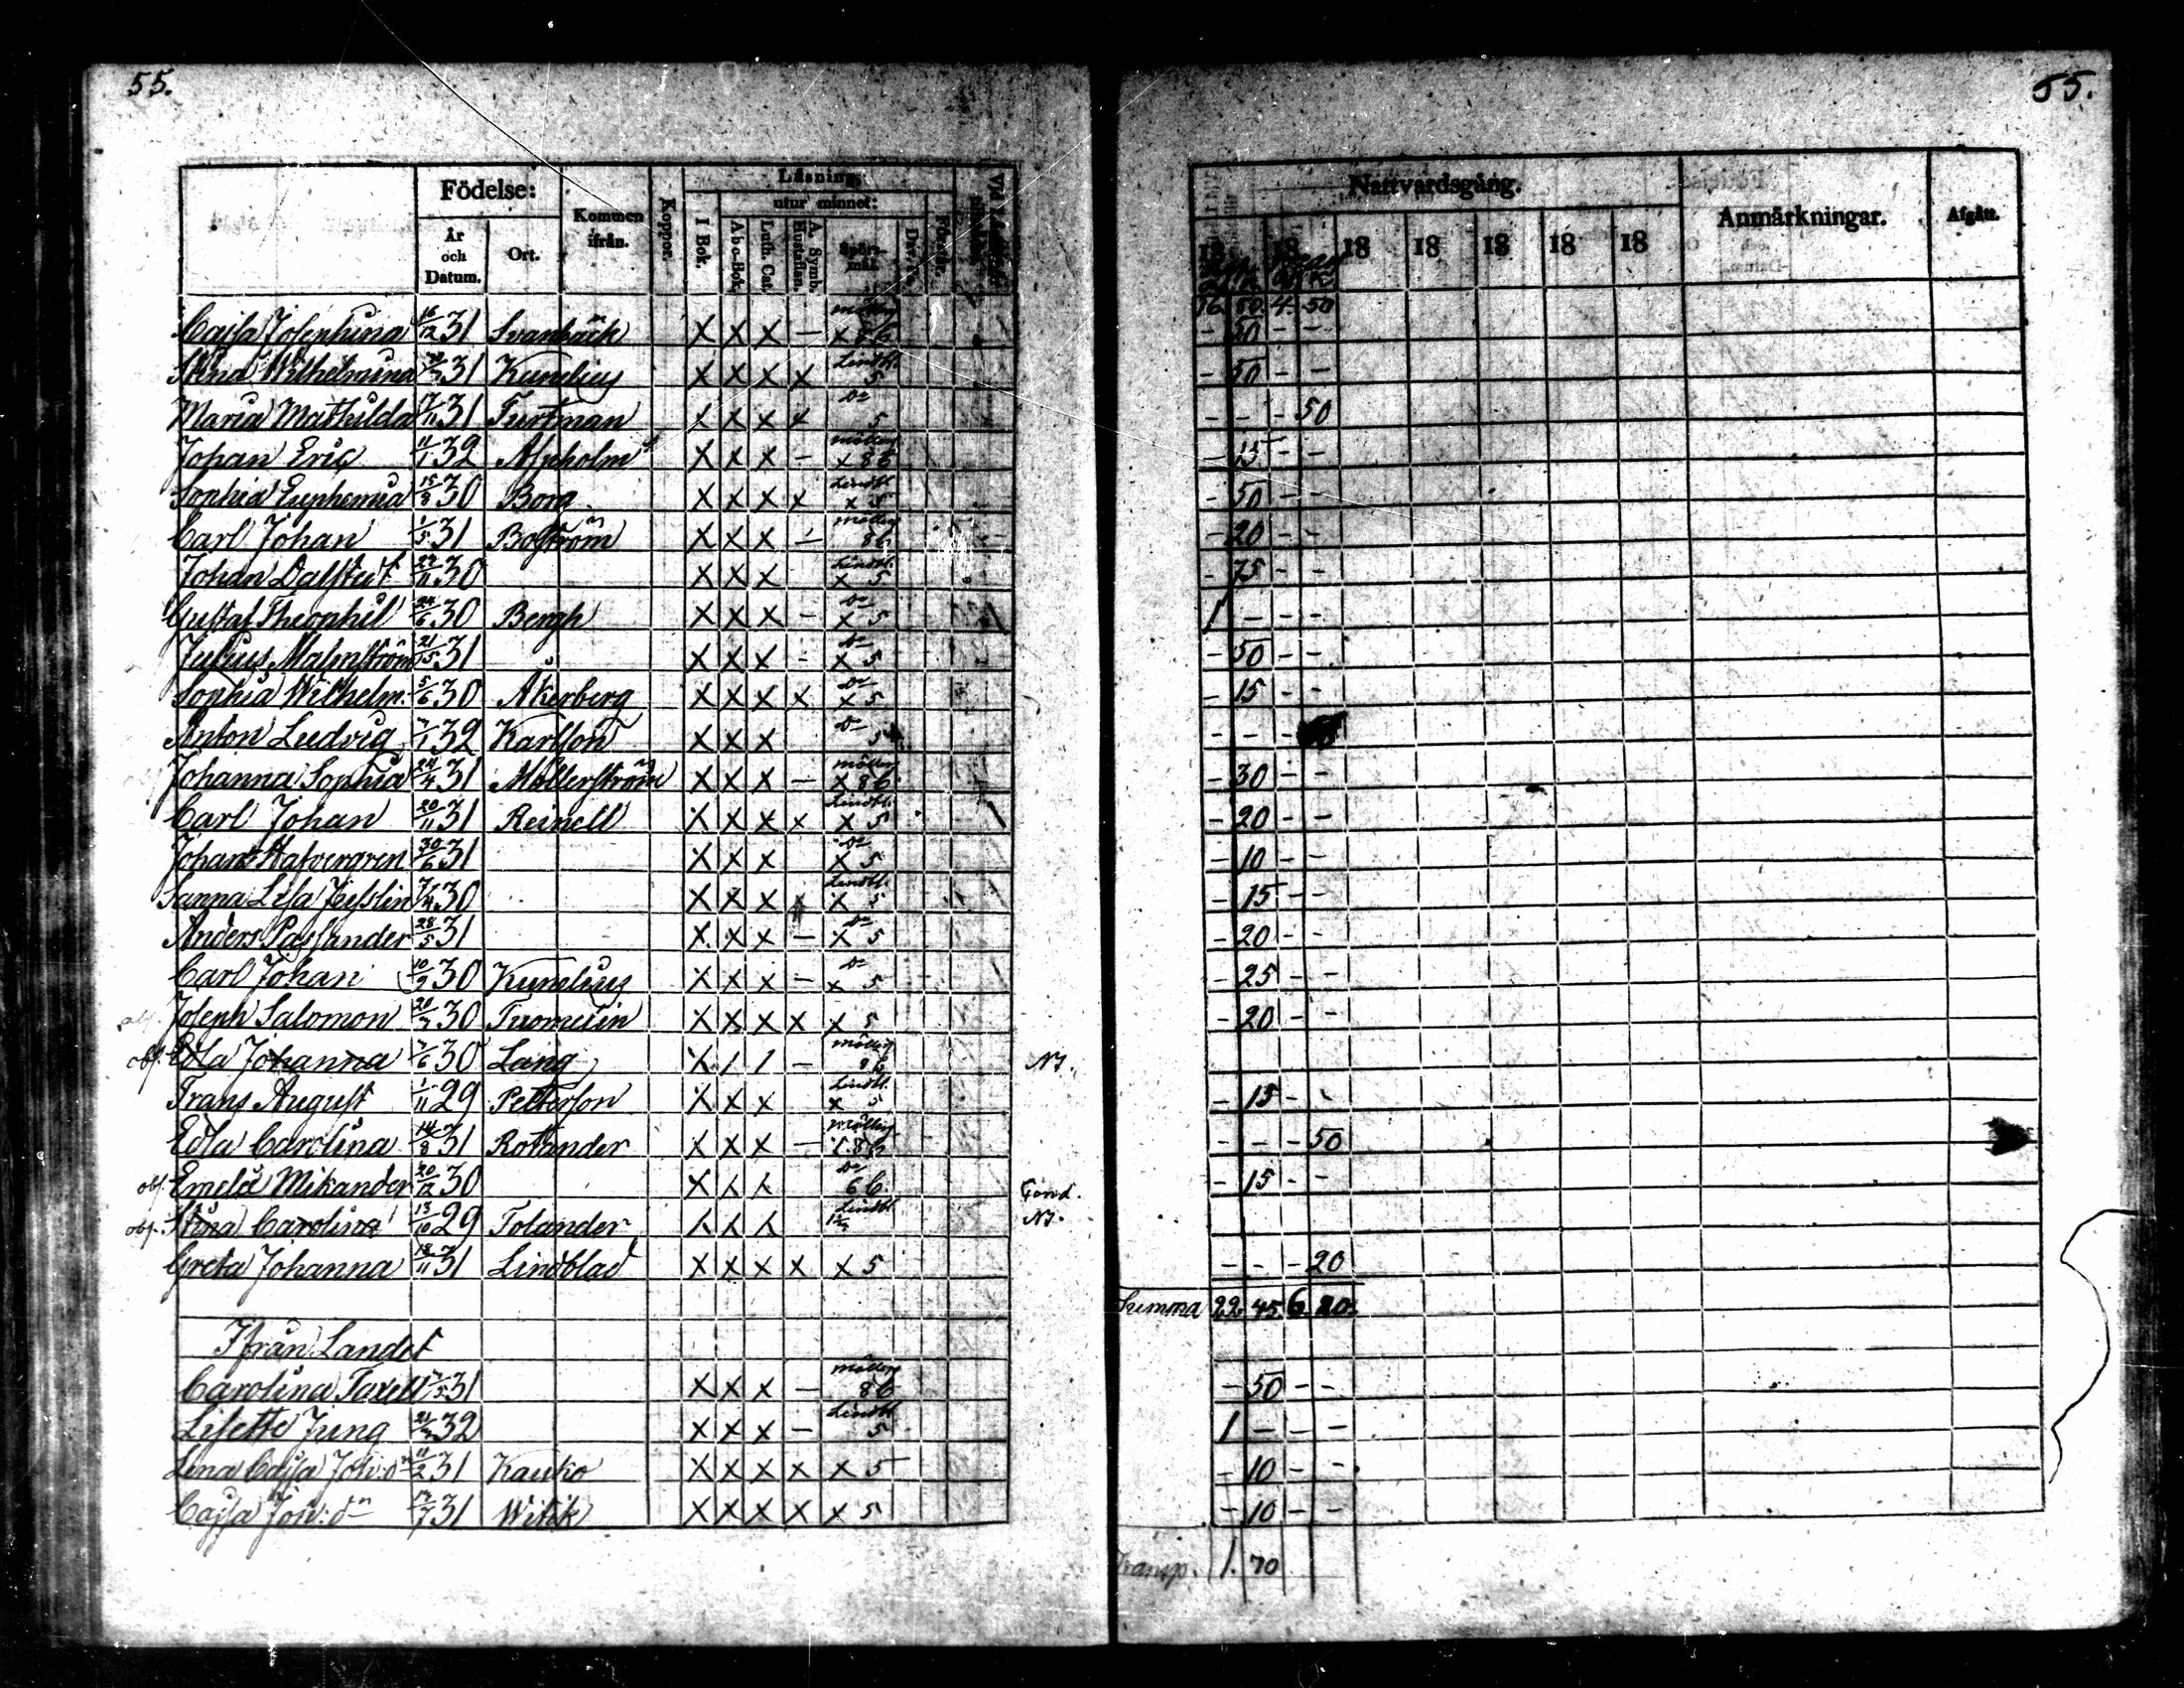 55.
Födelse:
År och Datum.
Ort.
Kommen ifrån.
Koppor.
Läsning,
utur minnet:
I Bok.
Abc-Bok.
Luth. Cat.
A. Symb. Hustaflan.
Spörs-mål.
Cajsa Josephina 16/12 31 Svanbäck X X X – möller X 8 b
Stina Wilhelmina 31 Kunelius X X X X Lindbl. 5
Maria Mathilda 17/11 31 Furtman X X X X Do 5
Johan Eric 11/1 32 Alpholm X X X – möller X 8 b
Sophia Euphemia 15/8 30 Borg X X X X Lindbl X 5
Carl Johan 1/5 31 Boström X X X – möller 8 b
Johan Dalstedt 27/11 30 X X X Lindbl. X 5
Gustaf Theophil 24/6 30 Bergh X X X – Do X 5
Julius Malmström 21/5 31 X X X – Do X 5
Sophia Wilhelm. 5/6 30 Åkerberg X X X X Do X 5
Anton Ludvig 7/1 32 Karlson X X X Do 5
Johanna Sophia 24/4 31 Möllerström X X X – möller X 8 b
Carl Johan 20/11 31 Reinell X X X X Lindbl. X 5
Johan Hafvergren 30/6 31 X X X Do X 5
Sanna Lisa 7/4 30 X X X X Lindbl. X 5
Anders Passander 28/5 31 X X X – Do X 5
Carl Johan 10/9 30 Kunelius X X X – Do X 5
Joseph Salomon 20/7 30 Tuomelin X X X X X 5
obs. Edla Johanna 7/6 30 Lang X / / – möller 8 b N3.
Frans August 1/11 29 Petterson X X X Lindbl. X 5
Edla Carolina 14/8 31 Rotander X X X – möller 8 b
obs. Emelie Mikander 20/12 30 X Do 6 b
obs. Stina Carolina 13/10 29 Tolander Lindbl N3.
Greta Johanna 18/11 31 Lindblad X X X X X 5
Ifrån Landet
Carolina Taxell 31 X X X – möller 8 b
Lisette Jung 21/7 32 X X X – Lindbl 5
Lena Cajsa Joh:dr 11/2 31 Kauko X X X X X 5
Cajsa 31 Witik X X X X X 5
55.
Nattvardsgång.
Anmärkningar.
Afgått.
18 18 18 18 18 18 18
16. 50. 4. 50
– 50 – –
– 50 – –
– – – 50
– 15 – –
– 50 – –
– 20 – –
– 75 – –
1 – – –
– 50 – –
– 15 – –
– – –
– 30 – –
– 20 – –
– 10 – –
– 15 – –
– 20 – –
– 25 – –
– 20 – –
– 15 – –
– – – 50
– 15 – –
– – – 20
Summa 22. 45. 6. 20.
– 50 – –
1 – – –
– 10 – –
– 10 – –
Transp. 1. 70